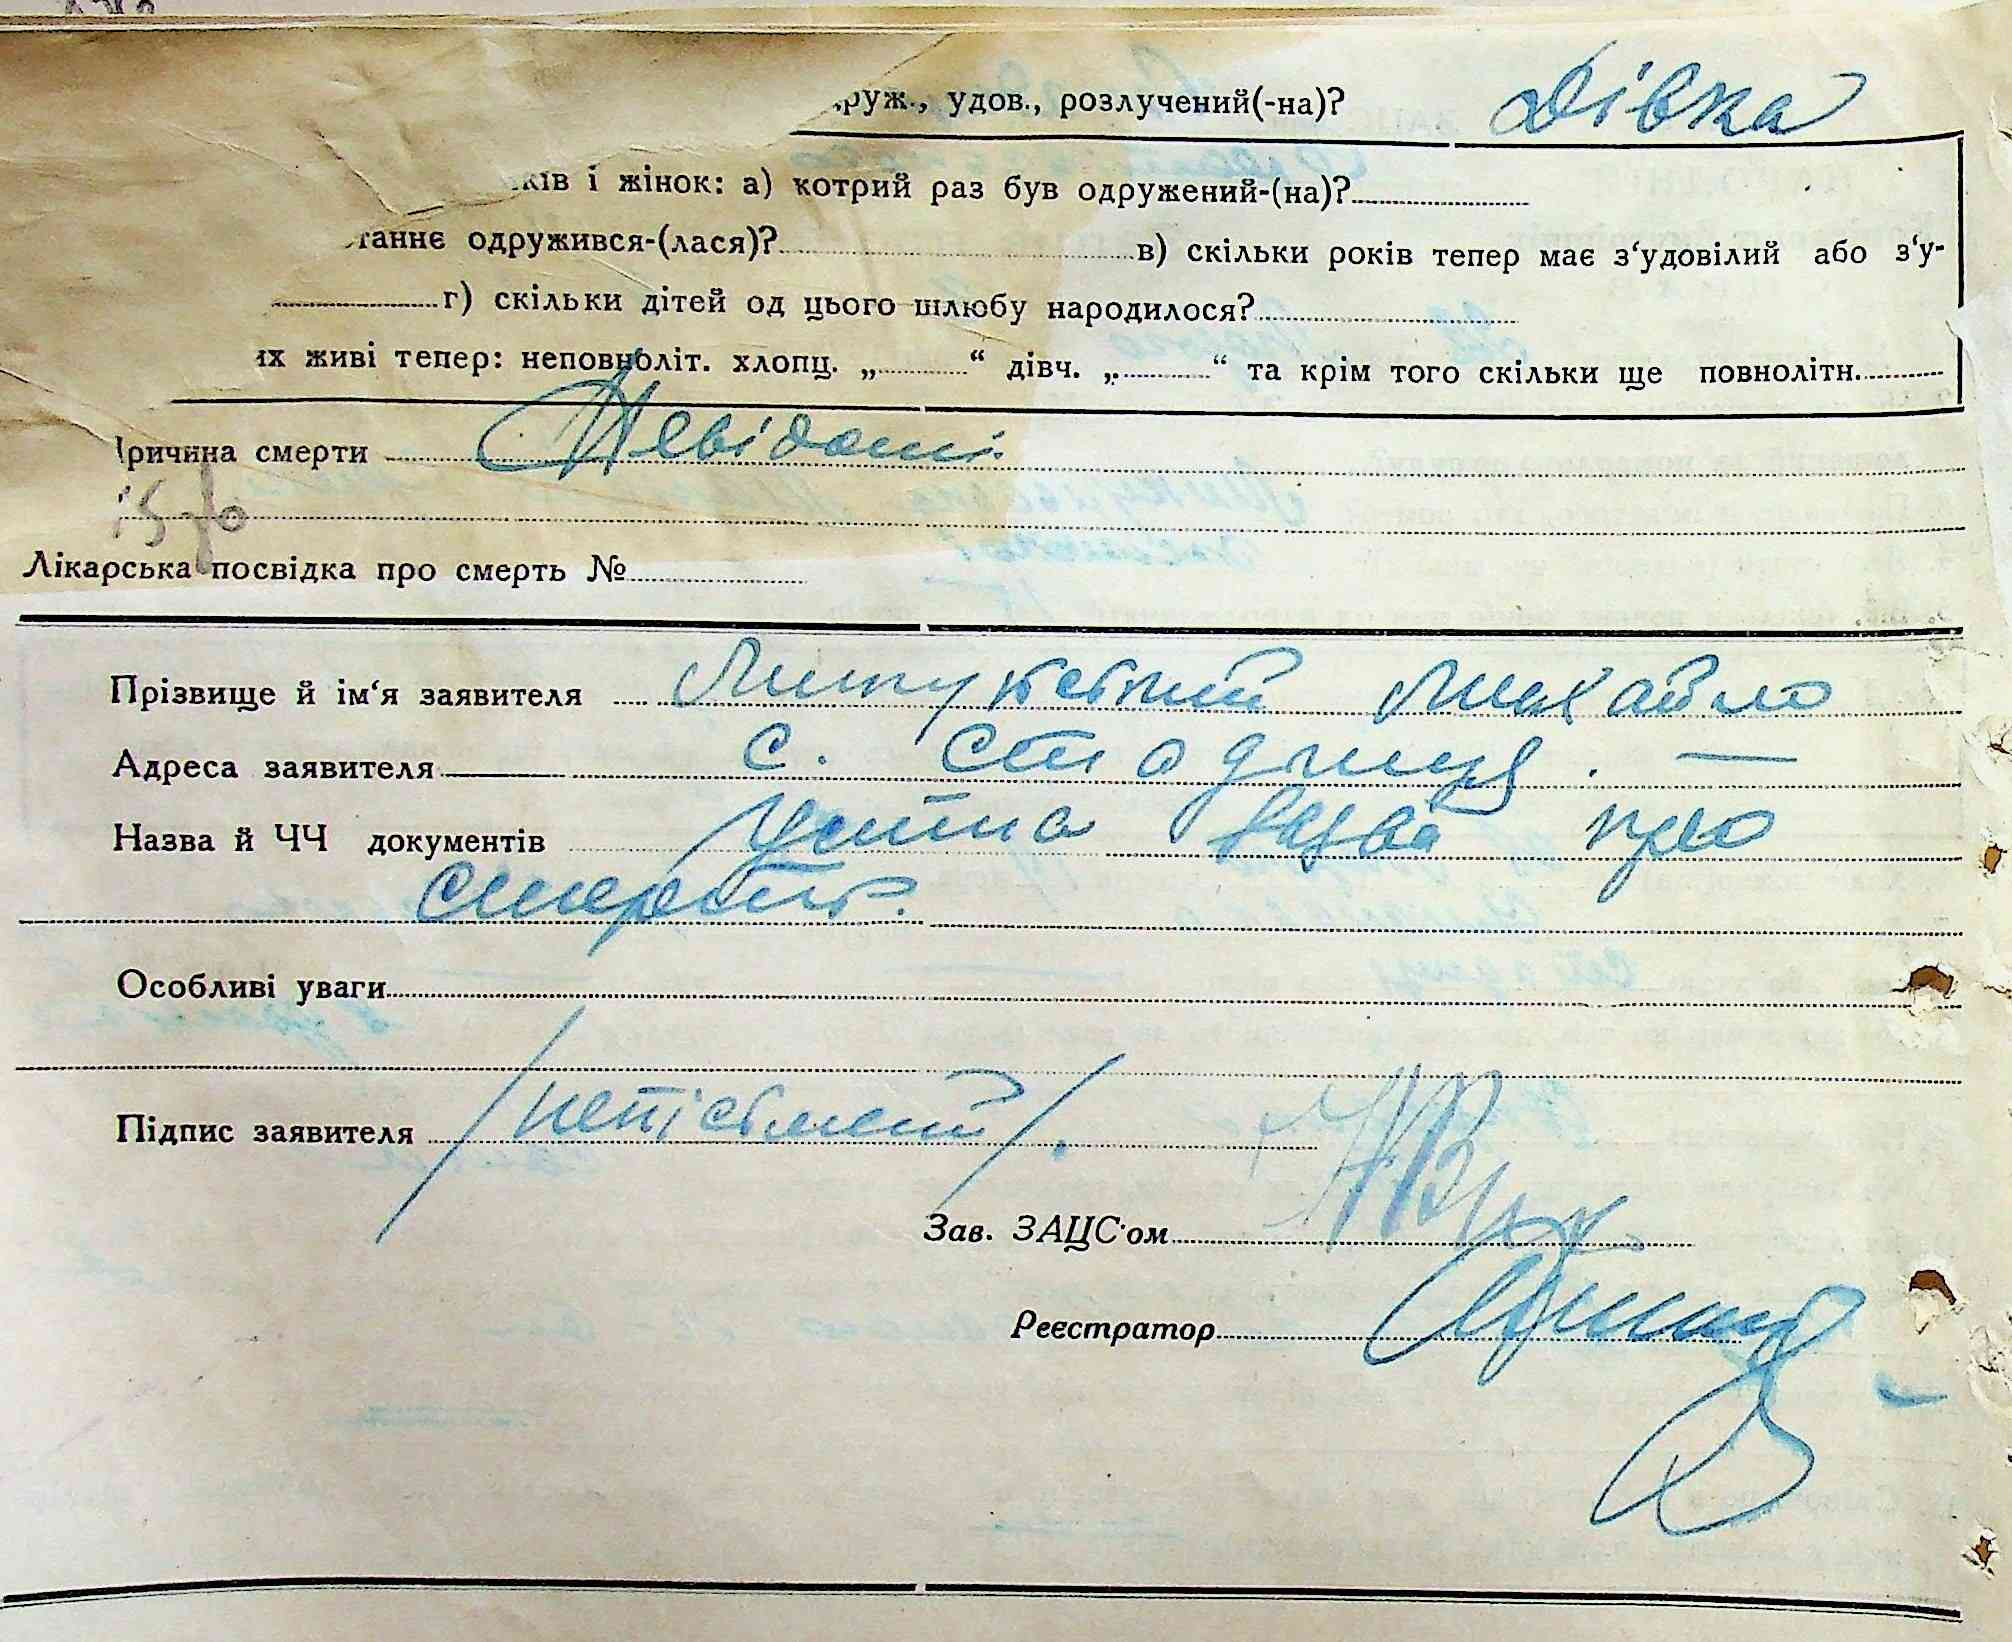 руж., удов., розлучений(-на)? Дівка
ків і жінок: а) котрий раз був одружений-(на)?
таннє одружився-(лася)? в) скільки років тепер має з‘удовілий або з‘у-
г) скільки дітей од цього шлюбу народилося?
их живі тепер: неповноліт. хлопц. „ “ дівч. „ “ та крім того скільки ще повнолітн.
Причина смерти Невідомі.
Лікарська посвідка про смерть №
Прізвище й ім‘я заявителя Михайло
Адреса заявителя с. Стадниця. —
Назва й ЧЧ документів Устна заява про
смерть.
Особливі уваги
Підпис заявителя /неписьмений/.
Зав. ЗАЦС‘ом
Реєстратор